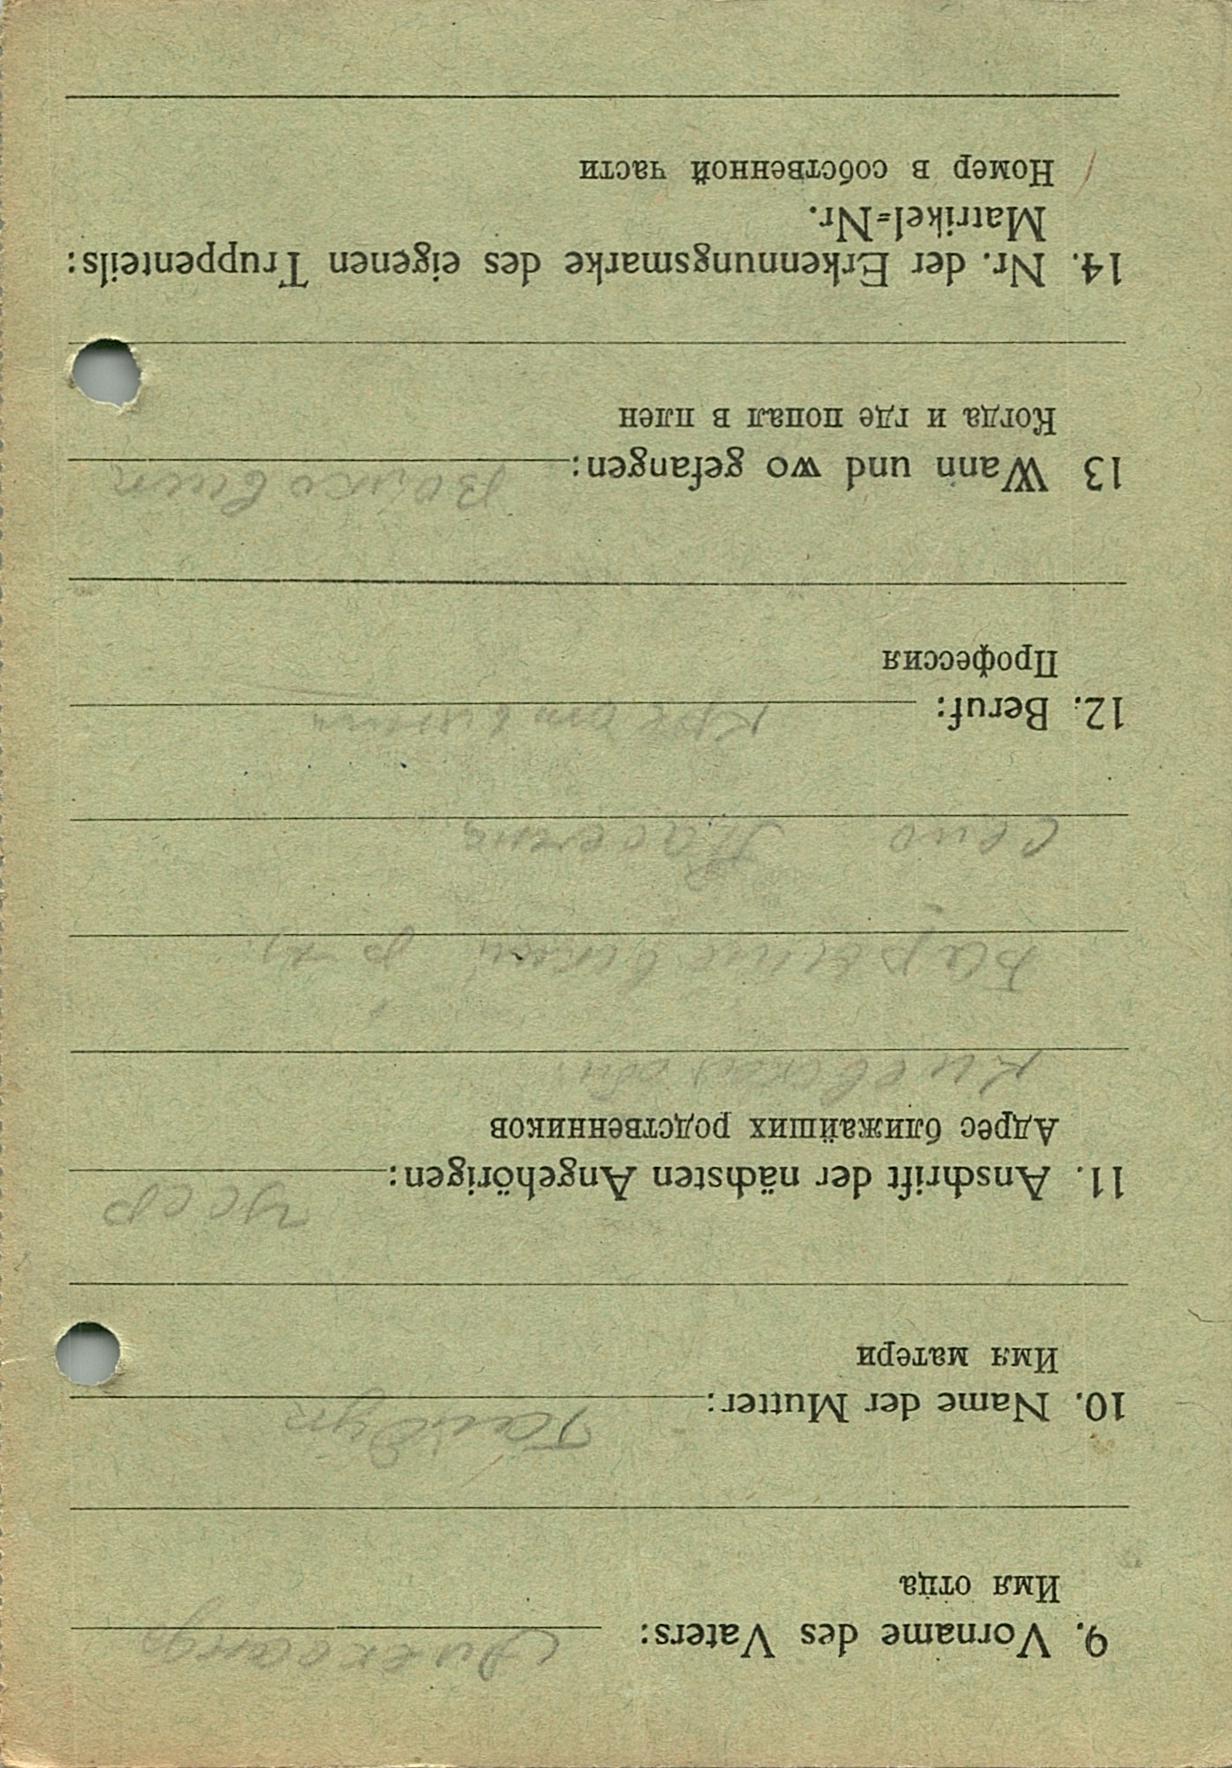 9. Vorname des Vaters: Александр
Имя отца
10. Name der Mutter:
Имя матери
11. Anschrift der nächsten Angehörigen: УССР
Адрес ближайших родственников
Киевская обл.
р-н.
Село
12. Beruf:
Профессия
13 Wann und wo gefangen:
Когда и где попал в плен
14. Nr. der Erkennungsmarke des eigenen Truppenteils:
Matrikel=Nr.
Номер в собственной части